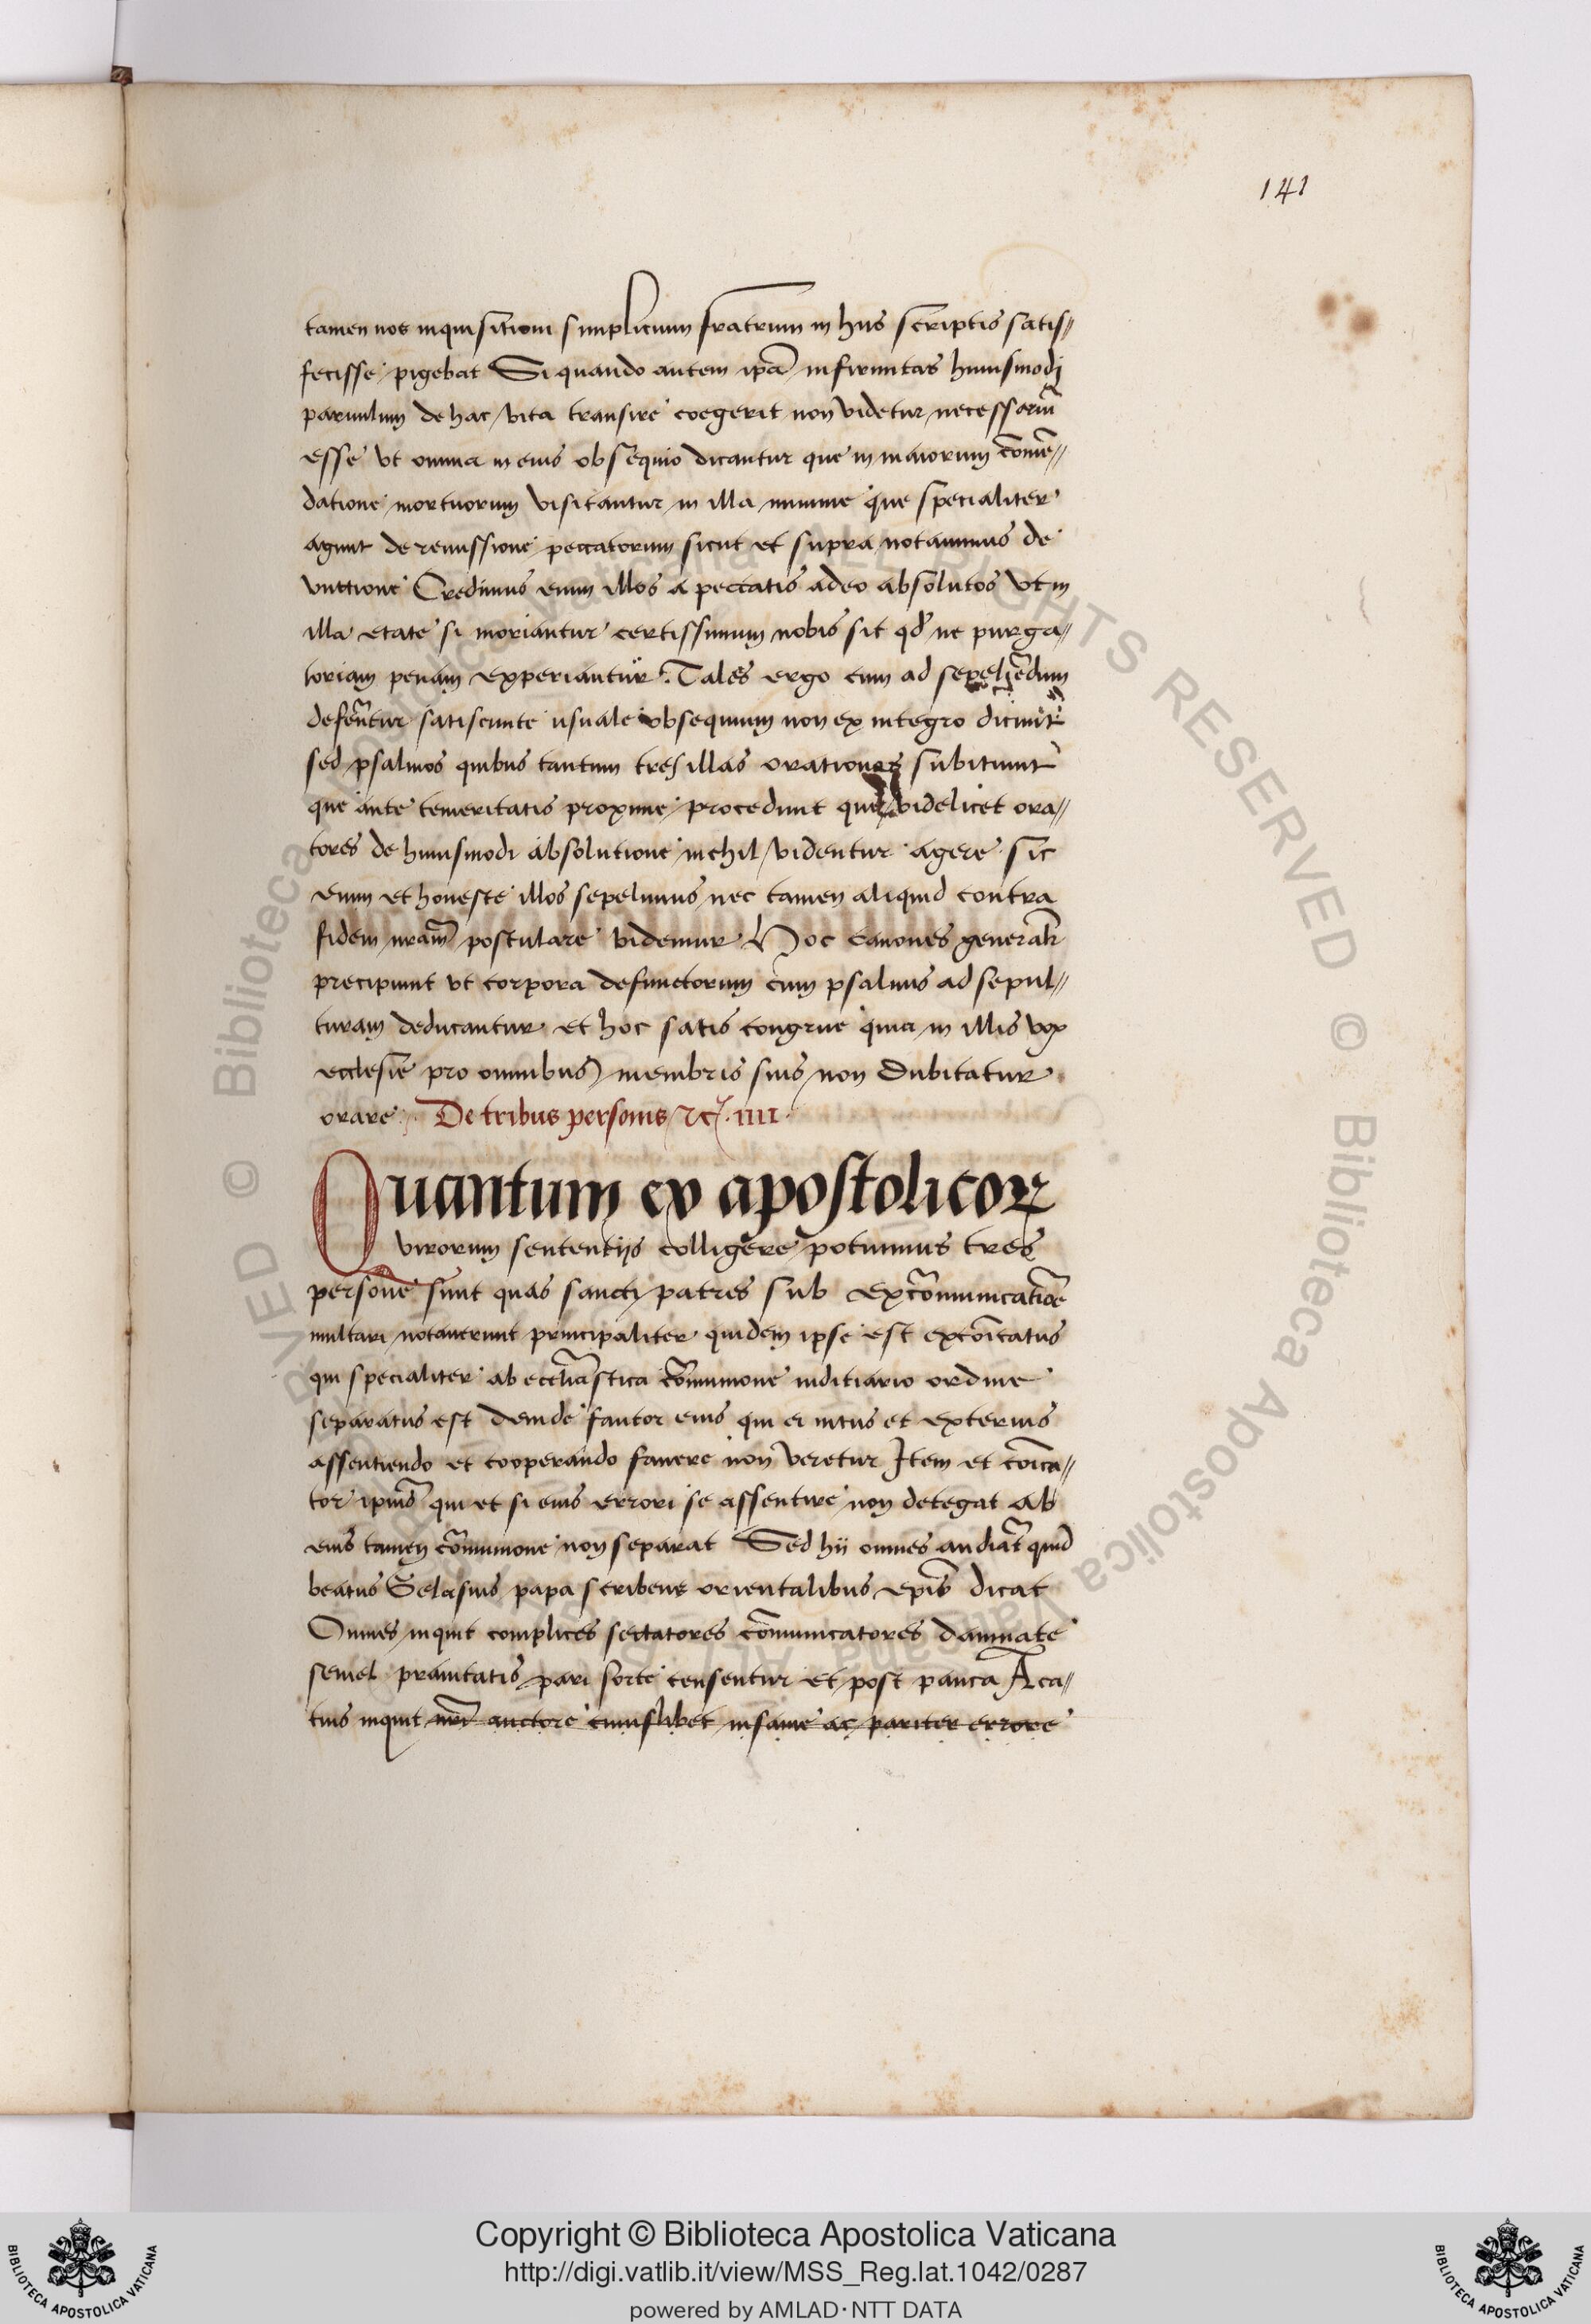 141
tamen nos inquisitioni simplicium fratrum in hiis scriptis satis//
fecisse pigebat Si quando autem ipa͂ infirmitas huiusmodi
paruulum de hac vita transire coegerit non videtur necessariu͂
esse vt omnia in eius obsequio dicantur que in maiorum co͂me͂//
datione mortuorum visitantur in illa minime que specialiter
agunt de remissione peccatorum sicut et supra notauimus de
vnctione Credimus enim illos a peccatis adeo absolutos vt in
illa etate si moriantur certissimum nobis sit qd͂ ne purga//
toriam penam experiantur. Tales ergo cum ad sepelie͂dum
defere͂ntur usuale obsequium non ex integro
sed psalmos quibus tantum tres illas orationes
que ante temeritatis proxime procedunt que videlicet ora//
tores de huiusmodi absolutione nichil videntur agere sic
enim et honeste illos sepelimus nec tamen aliquid contra
fidem nram͂ postulare videmur Hoc canones
precipiunt vt corpora defunctorum cum psalmis ad sepul//
turam deducantur et hoc satis congrue quia in illis vox
ecclesie pro omnibus membris suis non dubitatur
orare. De tribus personis .IIII.
Quantum ex apostolicoꝝ
virorum sententijs colligere potuimus tres
persone sunt quas sancti patres sub exco͂municatio͂e
multari notauerunt principaliter quidem ipse est exco͂icatus
qui specialiter ab eccl͂iastica co͂mmunione iuditiario ordine
separatus est deinde fautor eius qui ei intus et exterius
assentiendo et cooperando fauere non veretur Item et co͂ica//
tor ipius͂ qui et si eius errori se assentire non detegat ab
eius tamen co͂mmunione non separat Sed hii omnes audia͂t quid
beatus Gelasius papa scribens orientalibus epis͂ dicat
Omnes inquit complices sectatores co͂municatores damnate
semel prauitatis pari sorte censentur et post pauca Aca//
tius inquit auctore insanie ac pariter errore
Bibliotheca Apostolica Vaticana ALL RIGHTS RESERVED ©
Copyright © Biblioteca Apostolica Vaticana
http://digi.vatlib.it/view/MSS_Reg.lat.1042/0287
powered by AMLAD·NTT DATA
BIBLIOTECA APOSTOLICA VATICANA
BIBLIOTECA APOSTOLICA VATICANA